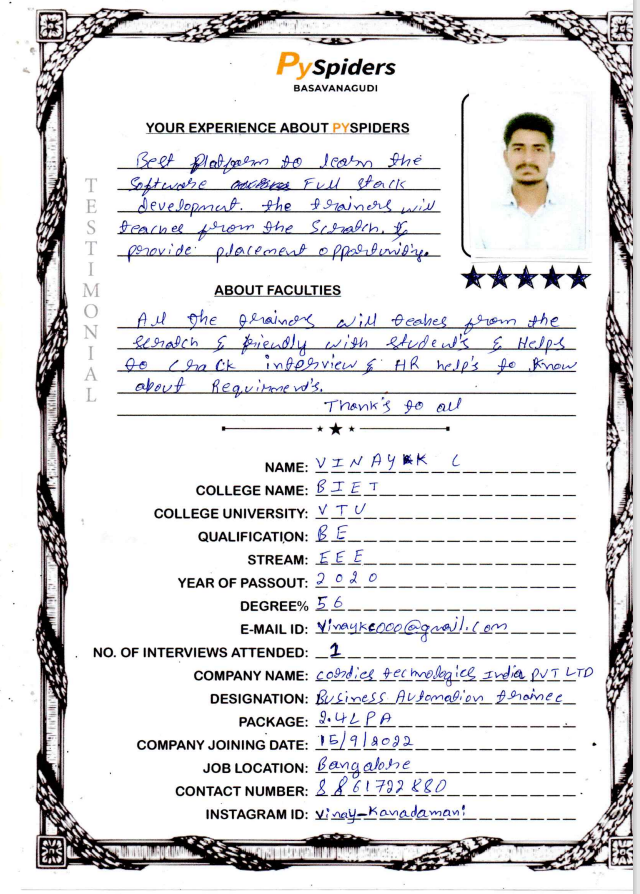 PySpiders
BASAVANAGUDI
YOUR EXPERIENCE ABOUT PYSPIDERS
Best platform to learn the
Software Full stack
development. the trainers will
teaches from the Scratch. &
provide placement opportunity.
TESTIMONIAL
ABOUT FACULTIES
All the trainers will teaches from the
scratch & friendly with student's & Helps
to crack interview & HR help's to know
about Requirment's.
Thank's to all
NAME: VINAY K C
COLLEGE NAME: BIET
COLLEGE UNIVERSITY: VTU
QUALIFICATION: BE
STREAM: EEE
YEAR OF PASSOUT: 2020
DEGREE% 56
E-MAIL ID: vinaykc000@gmail.com
NO. OF INTERVIEWS ATTENDED: 1
COMPANY NAME: technologies India PVT LTD
DESIGNATION: Business Automation trainee
PACKAGE: 2.4LPA
COMPANY JOINING DATE: 15/9/2022
JOB LOCATION: Bangalore
CONTACT NUMBER: 8861722880
INSTAGRAM ID: vinay_Kanadamani